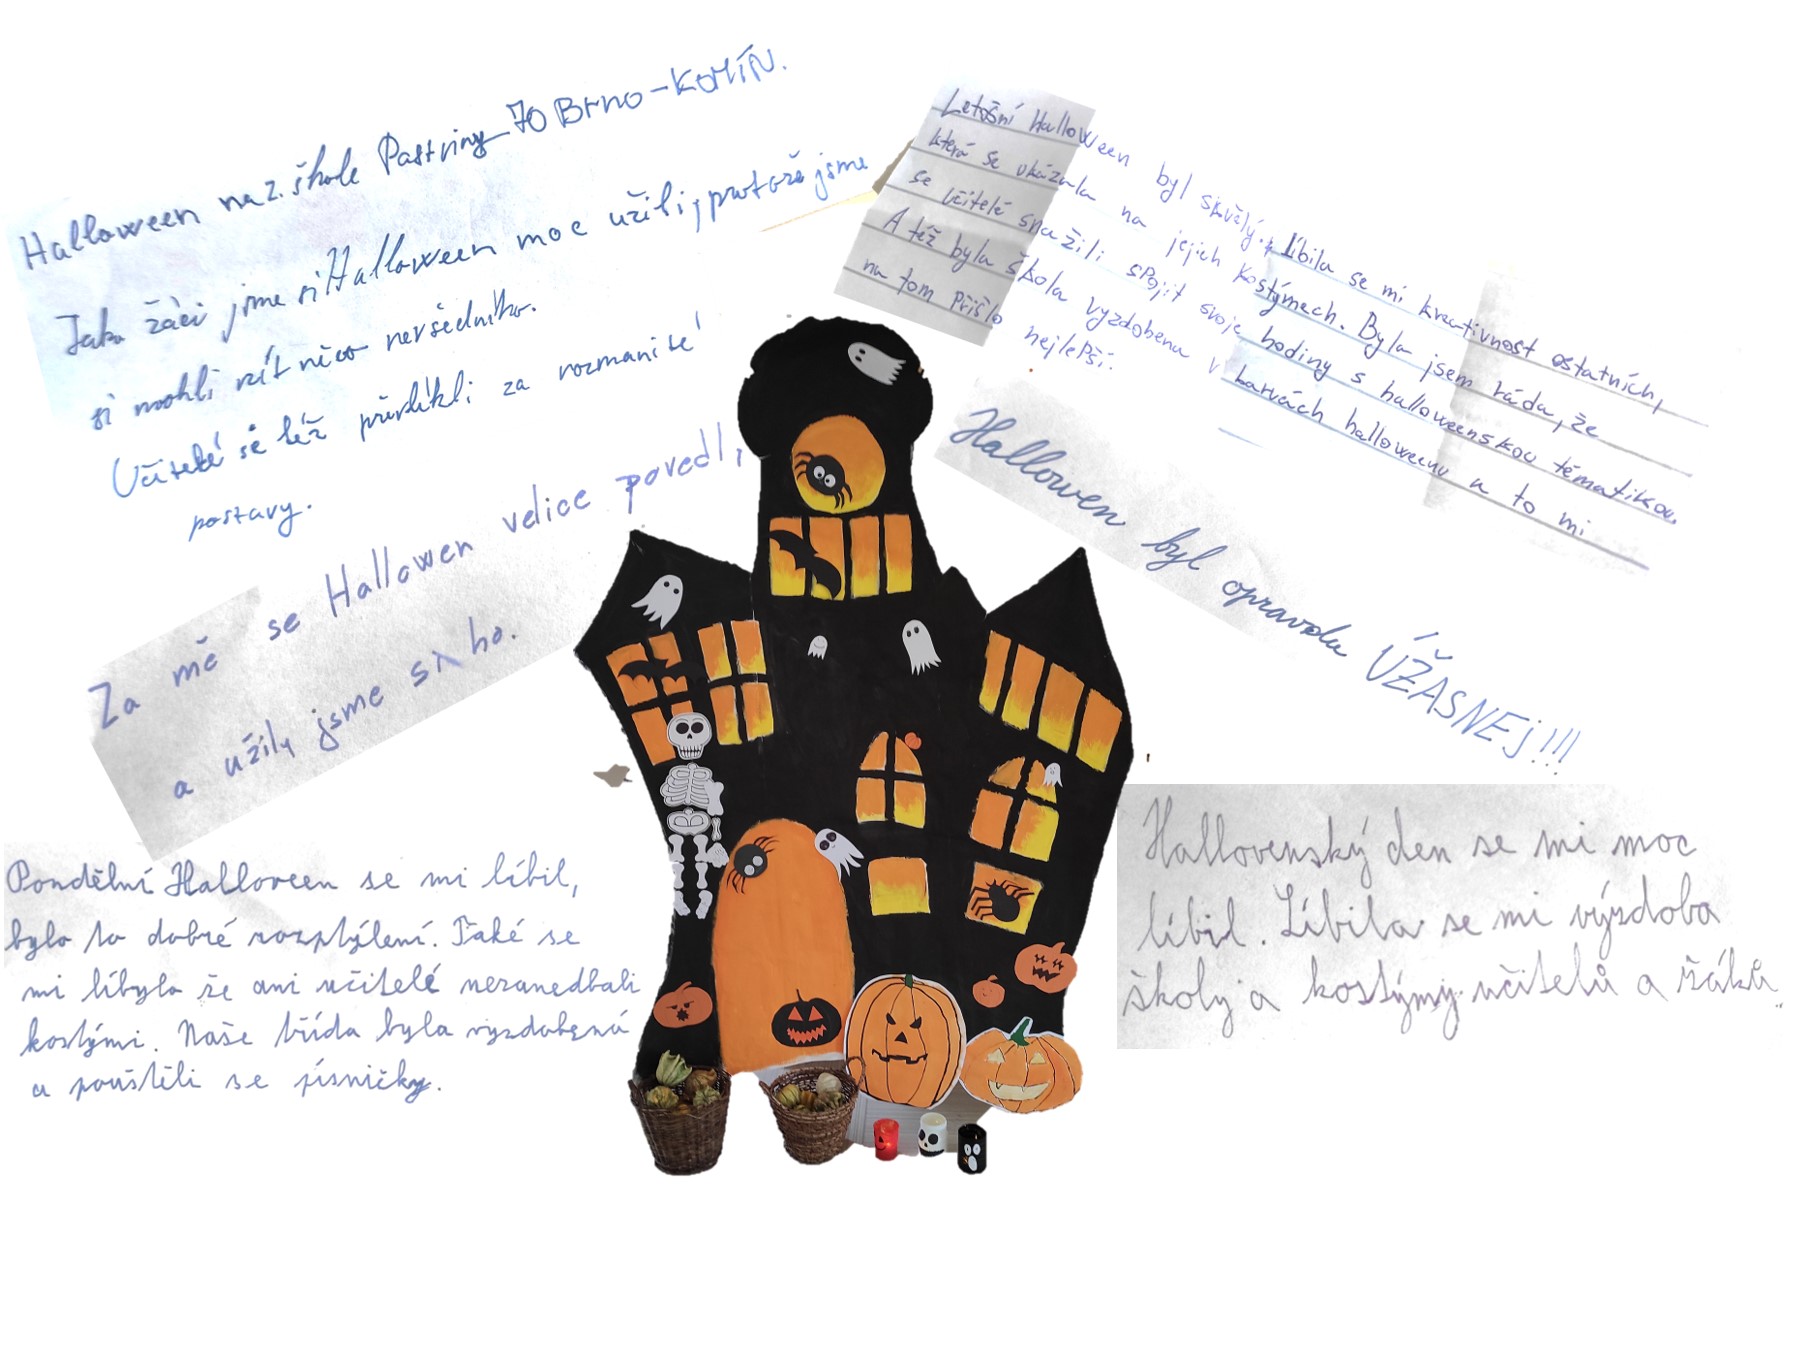 Halloween na z. škole Pastviny 70 Brno-KOMÍN.
Jako žáci jsme si Halloween moc užili, protože jsme
si mohli užít něco nevšedního.
Učitelé se též převlíkli za rozmanité
postavy.
Za mě se Hallowen velice povedl,
a užily jsme si ho.
Pondělní Halloveen se mi líbil,
bylo to dobré rozptýlení. Také se
mi líbylo že ani učitelé nezanedbali
kostými. Naše třída byla vyzdobená
a pouštěli se písničky.
Letošní Halloween byl skvělý. Líbila se mi kreativnost ostatních,
která se ukázala na jejich kostýmech. Byla jsem ráda, že
se učitelé snažili spojit svoje hodiny s halloweenskou tématikou.
A též byla škola vyzdobena v barvách halloweenu a to mi
na tom přišlo nejlepší.
Hallowen byl opravdu ÚŽASNEJ!!!
Hallovenský den se mi moc
líbil. Líbila se mi výzdoba
školy a kostýmy učitelů a žáků.